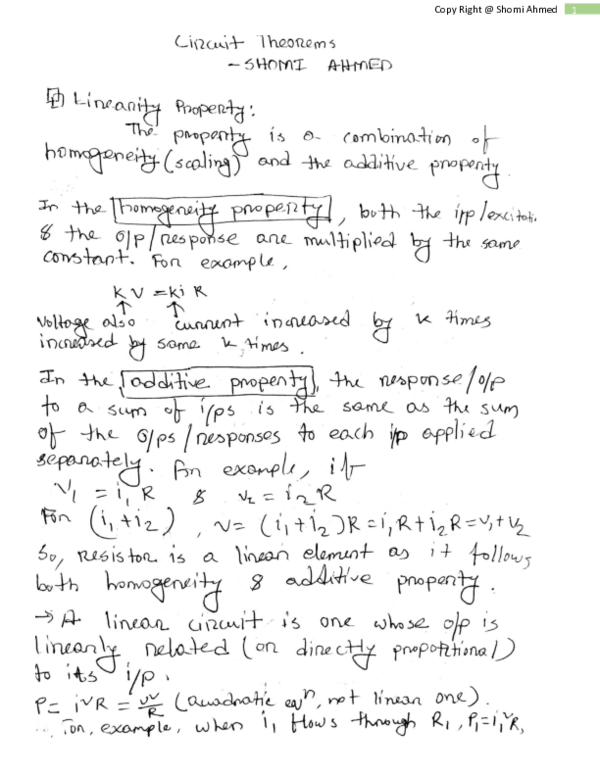 Copy Right @ Shomi Ahmed 1
Circuit Theorems
- SHOMI AHMED
Linearity Property:
The property is a combination of
homogeneity (scaling) and the additive property
In the homogeneity property, both the i/p/excitati.
& the o/p/response are multiplied by the same
constant. For example,
K V = k i R
↑ ↑
Voltage also current increased by k times
increased by same k times.
In the additive property, the response/o/p
to a sum of i/ps is the same as the sum
of the o/ps/responses to each i/p applied
separately. For example, if
v₁ = i₁ R & v₂ = i₂ R
For (i₁+i₂), v = (i₁+i₂)R = i₁R+i₂R = v₁+v₂
So, resistor is a linear element as it follows
both homogeneity & additive property.
→ A linear circuit is one whose o/p is
linearly related (or directly propotional)
to its i/p.
P = i²R = v²/R (quadratic eqⁿ, not linear one).
For, example, when i₁ flows through R₁, P₁=i₁²R,